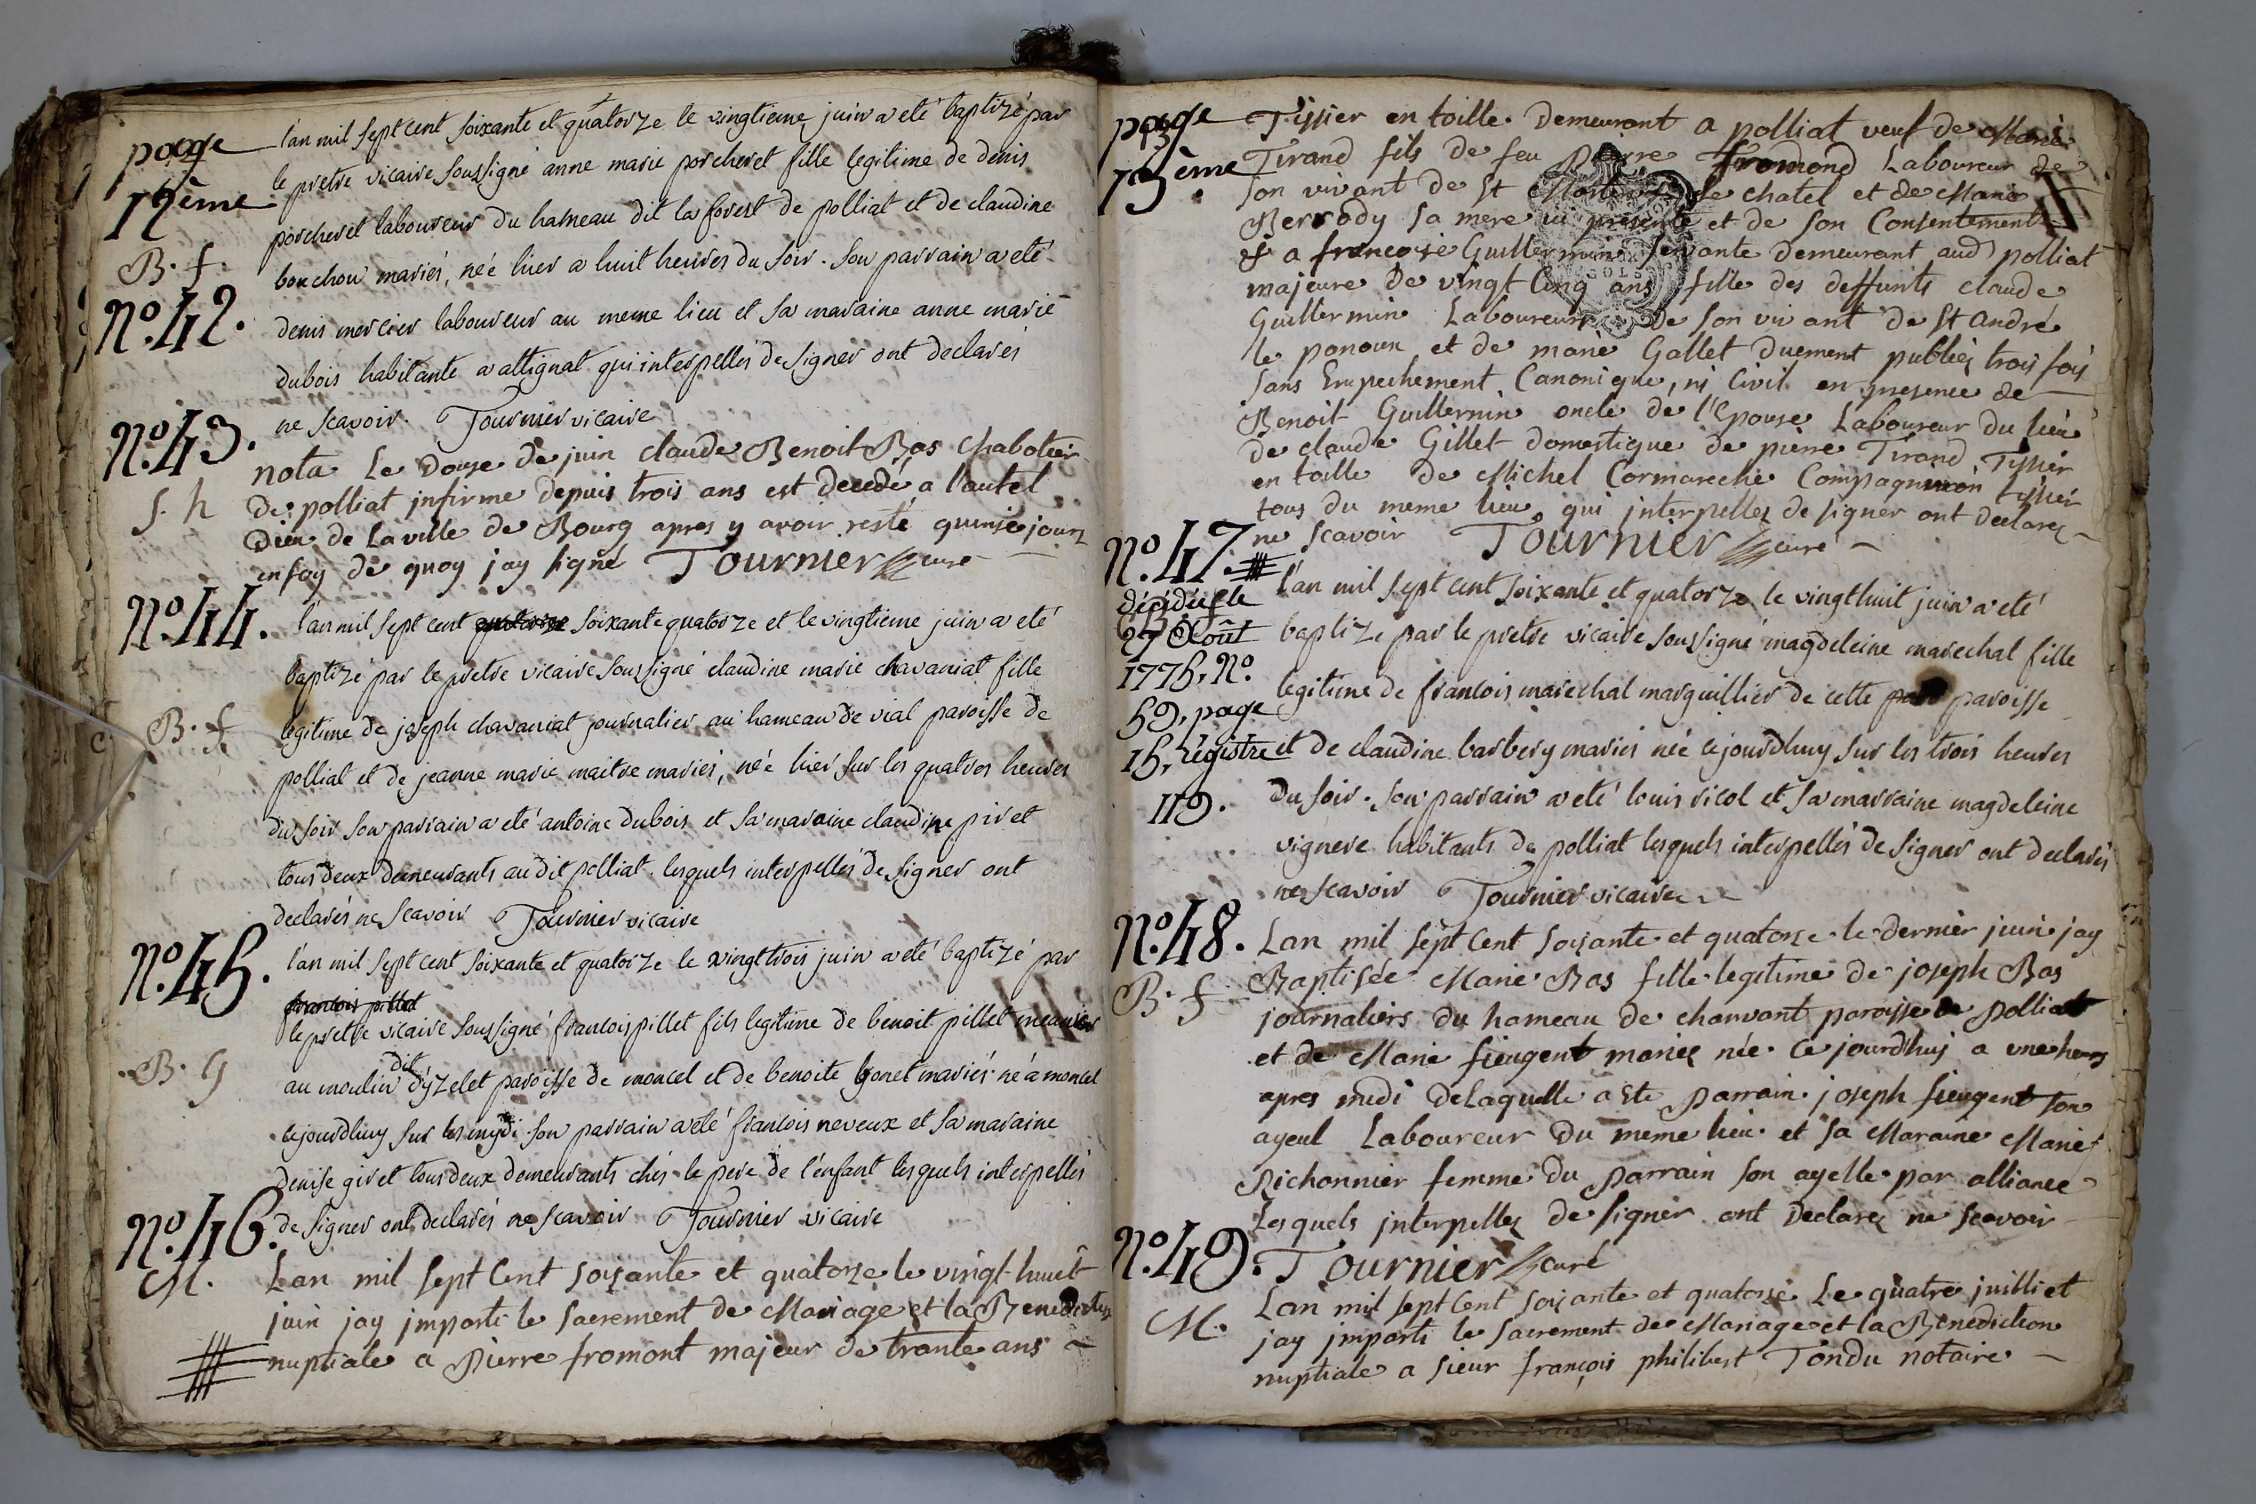 page
12ème
l'an mil sept cent soixante et quatorze le vingtieme juin a eté baptizé par
le pretre vicaire soussigné anne marie porcheret fille legitime de denis
porcheret laboureur du hameau dit la forest de polliat et de claudine
B. f.
bouchou mariés, née hier a huit heures du soir. son parrain a eté
No. 42.
denis mercier laboureur au meme lieu et sa maraine anne marie
dubois habitante a attignat qui interpellés de signer ont declarés
ne scavoir. Tournier vicaire
No. 43.
nota Le Douze de juin claude Benoit Bas Chabotier
S. h
de polliat jnfirme depuis trois ans est decedé a l'autel
Dieu de La ville de Bourg apres y avoir resté quinse jours
en foy de quoy jay signé Tournier curé
No. 44.
l'an mil sept cent soixante quatorze et le vingtieme juin a eté
baptizé par le pretre vicaire soussigné claudine marie chavaniat fille
B. f.
legitime de joseph chavaniat journalier au hameau de vial paroisse de
polliat et de jeanne marie maitre mariés, née hier sur les quatres heures
du soir son parrain a eté antoine dubois et sa maraine claudine piret
tous deux demeurants au dit polliat. lesquels interpellés de signer ont
declarés ne scavoir Tournier vicaire
No. 45.
l'an mil sept cent soixante et quatorze le vingt trois juin a eté baptizé par
francois pillet
le pretre vicaire soussigné francois pillet fils legitime de benoit pillet meunier
B. g
au moulin dit d'yzelet paroisse de moncel et de benoite gonet mariés né á moncel
cejourdhuy sur les mydi son parrain a eté francois neveux et sa maraine
denise giret tous deux demeurants chés le pere de l'enfant lesquels interpellés
No. 46.
de signer ont declarés ne scavoir Tournier vicaire
M.
Lan mil sept Cent soisante et quatorse le vingt-huuit
juin jay jmparti le sacrement de Mariage et la Benediction
nuptiale a Pierre fromont majeur de trante ans
page
13ème
Tissier en toille Demeurant a polliat veuf de Marie
Tirand fils de feu Pierre fromond Laboureur de
son vivant de St Martin le chatel et de Marie
Berrody sa mere ici presente et de son Consentement
& a francoise Guillermin servante demeurant aud polliat
majeure de vingt Cinq ans fille des deffunts claude
Guillermin Laboureur de son vivant de St André
le panoux et de marie Gallet duement publiéz trois fois
sans Empechement Canonique, ni Civil en presence de
Benoit Guillermin oncle de l'Epouse Laboureur du lieu
de claude Gillet domestique de pierre Tirand Tissier
en toille de Michel Cormareche Compagnion tissier
tous du meme lieu, qui jnterpellez de signer ont declarez
ne scavoir Tournier curé
No. 47.
décédée le
27 Août
1775, No.
59, page
15, régistre
119.
l'an mil sept cent soixante et quatorze le vingthuit juin a eté
baptizé par le pretre vicaire soussigné magdeleine marechal fille
legitime de francois marechal marguillier de cette paroisse
et de claudine barbery mariés née cejourdhuy sur les trois heures
du soir. son parrain a eté louis ricol et sa marraine magdeleine
vignere habitants de polliat lesquels interpellés de signer ont declarés
ne scavoir Tournier vicaire
No. 48.
Lan mil sept Cent soisante et quatorse le dernier juin jay
B. f
Baptisée Marie Bas fille legitime de joseph Bas
journaliers du hameau de chanvant paroisse de Polliat
et de Marie fieugent mariez née Ce jourdhuj a une heure
apres midi de Laquelle a Ete Parrain joseph fieugent son
ayeul Laboureur Du meme lieu et sa Maraine Marie
Pichonnier femme du Parrain son ayelle par alliance
Lesquels jnterpellez de signer ont Declarez ne scavoir
No. 49.
Tournier curé
M.
Lan mil sept Cent soisante et quatorse Le quatre juilliet
jay jmparti le sacrement de Mariage et la Benediction
nuptiale a sieur françois philibert Tondu notaire